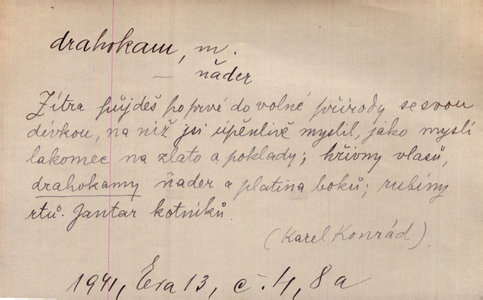 drahokam, m.
— ňader
Zítra půjdeš poprvé do volné přírody se svou
dívkou, na niž jsi úpěnlivě myslil, jako myslí
lakomec na zlato a poklady; hřivny vlasů,
drahokamy ňader a platina boků; rubíny
rtů. Jantar kotníků.
(Karel Konrád).
1941, Eva 13, č. 4, 8a